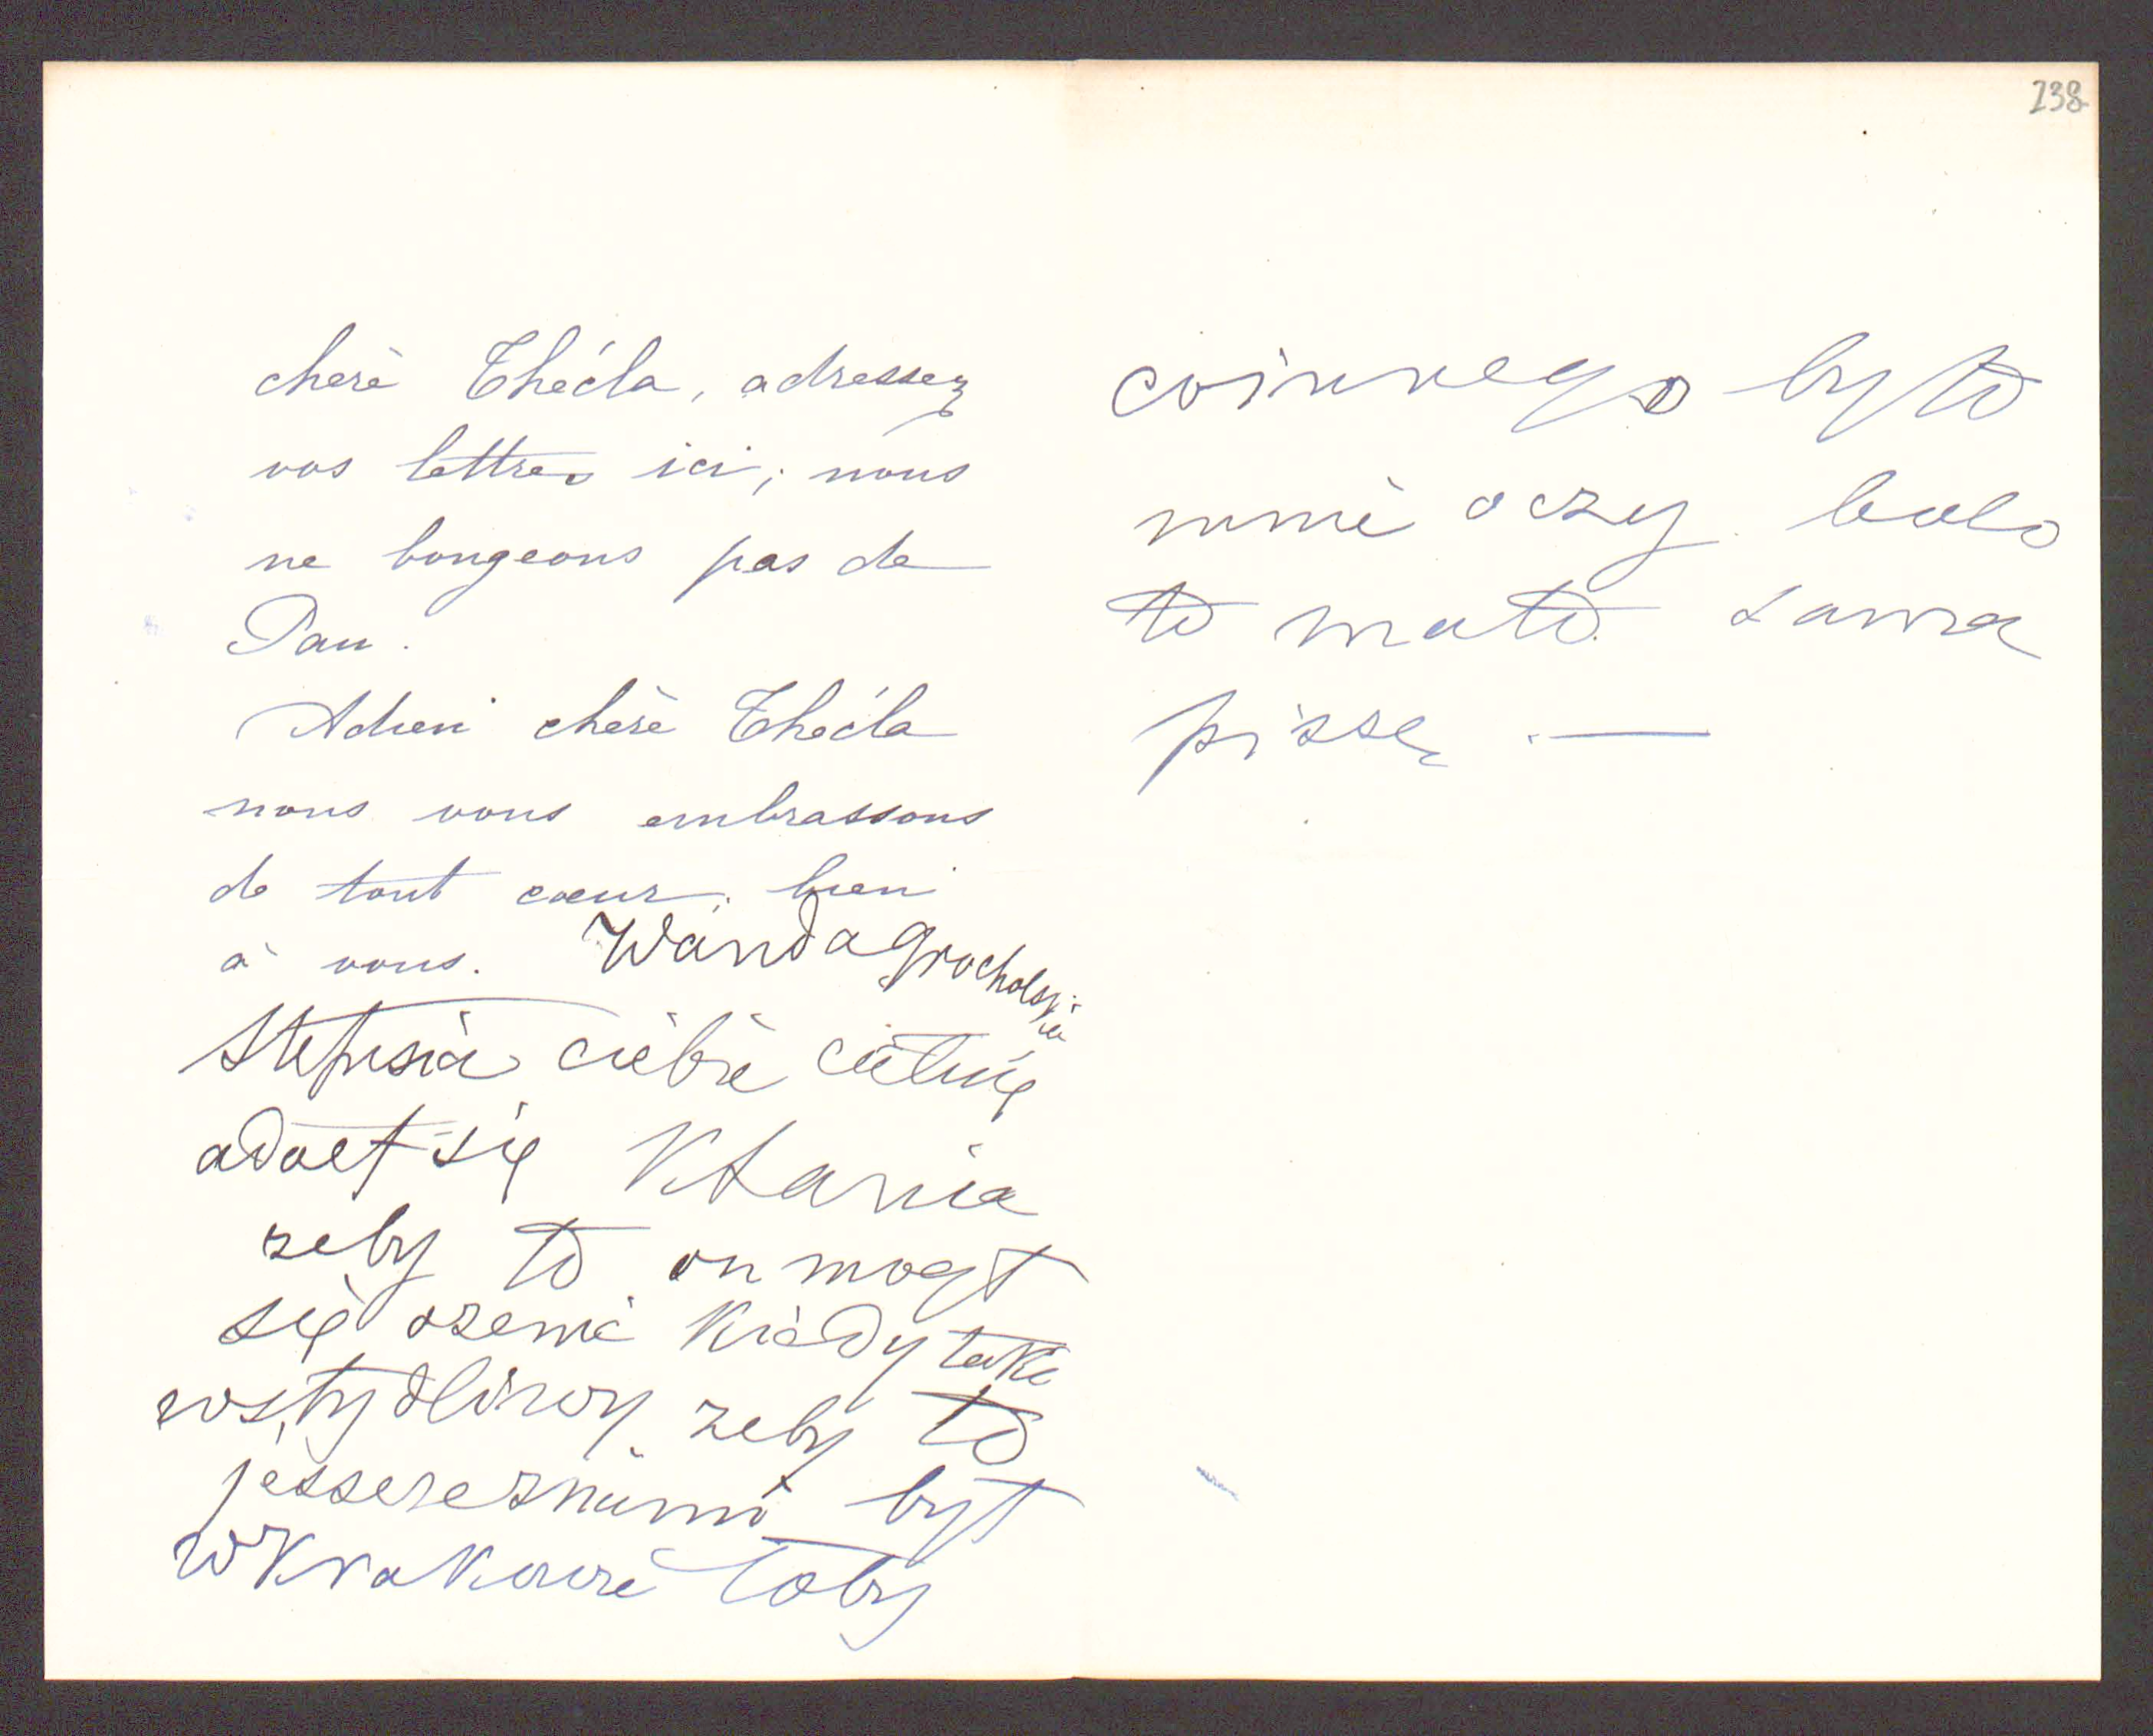 238
chère Thécla, adressez
vos lettres ici; nous
ne bougeons pas de
Pau.
Adieu chère Thécla
nous vous embrassons
de tout cœur, bien
à vous. Wanda Grocholska
Stefusia ciebie
się Kłania
zeby to on mogł
się ozenić Kiedy taki
wstydliwy zeby to
jesscze znami był
w Krakowie toby
coinnego byto
mnie oczy bolo
to mato sama
pisse . —